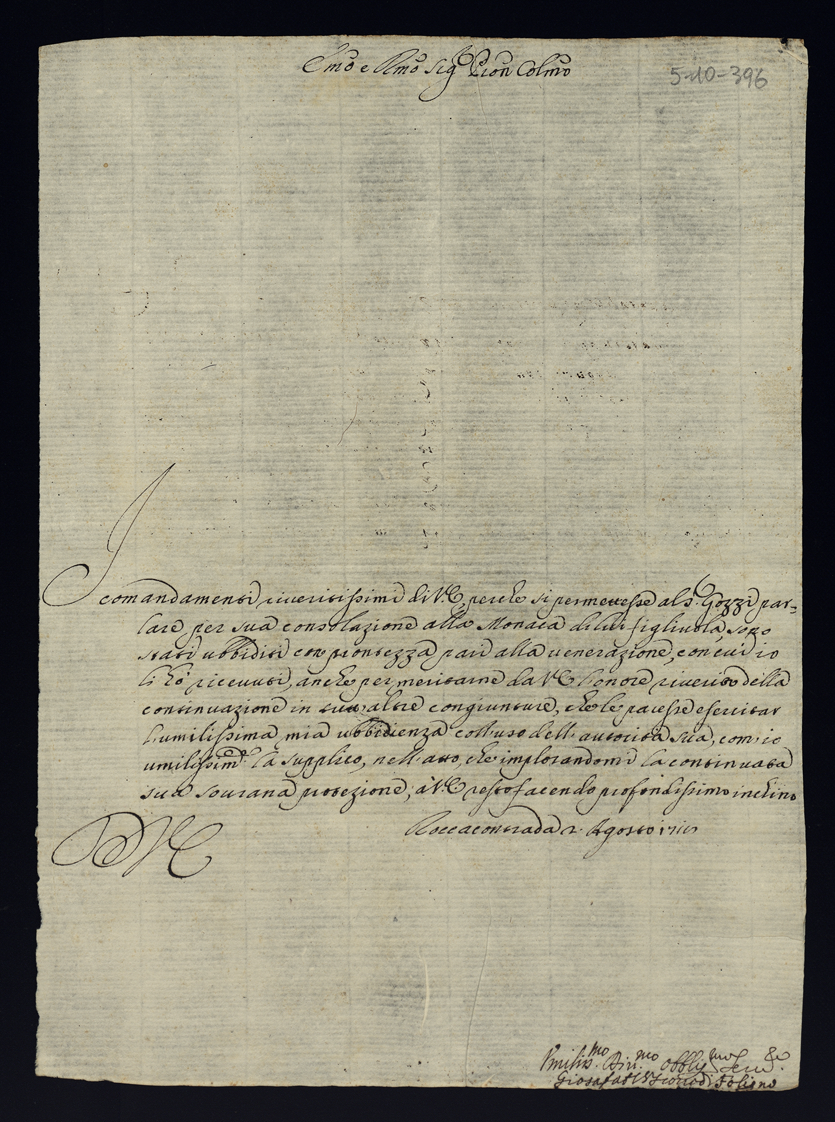 Emo e Rmo Sig Pron Colmo
5-10-396
I comandamenti riveritissimi di V.E. perche si permettesse al S.r Gozzi par=
lare per sua consolazione alla Monaca di lui figliuola, sono
stati ubbiditi con prontezza pari alla venerazione, con cui io
li hò ricevuti, anche per meritarne da V.E. l'onore riverito della
continuazione in altre congiunture, che le paresse esercitar
l'umilissima mia ubbidienza coll'uso dell'autorità sua, com'io
umilissimte la supplico, nell'atto, che implorandomi la continuata
sua sourana protezione, à V.E. resto facendo profondissimo inchino
Roccacontrada 2 Agosto
D V E
Umilis.mo Div.mo Obblig.mo Serv.
Giosafat Vescovo di Foligno